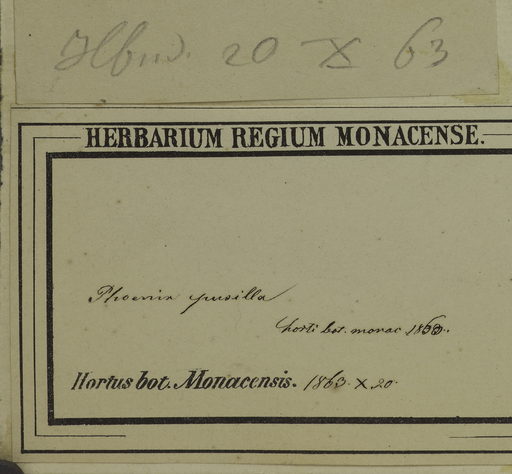 20 X 63
HERBARIUM REGIUM MONACENSE.
Phoenix pusilla
horti bot. monac 1863.
Hortus bot. Monacensis. 1863. X 20.